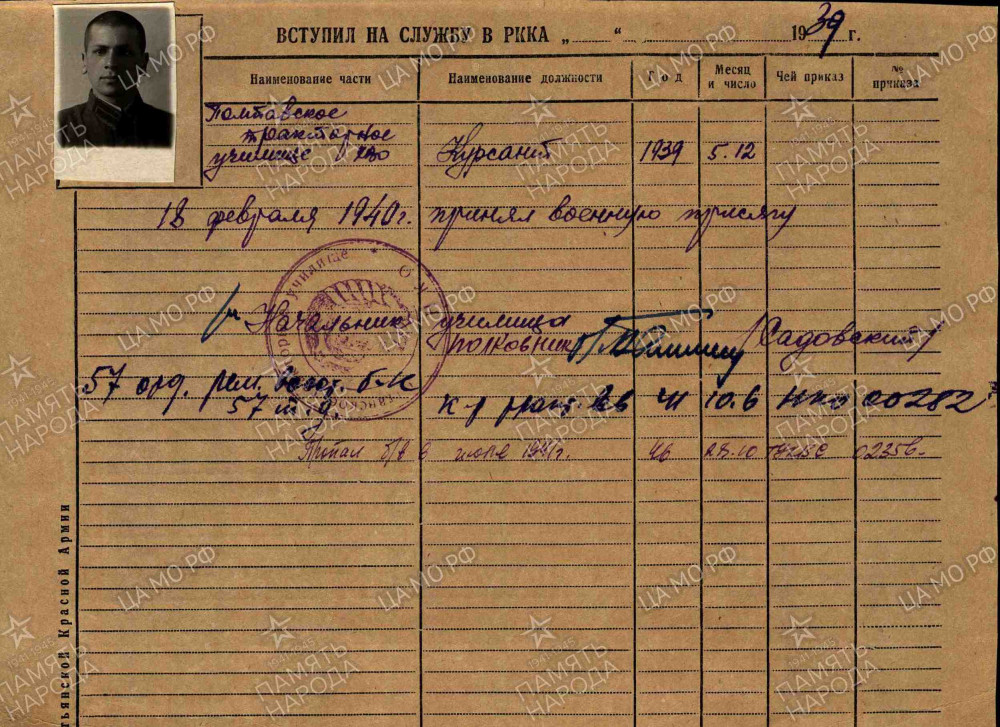 ВСТУПИЛ НА СЛУЖБУ В РККА „ “ 1939 г.
Наименование части Наименование должности Год Месяц и число Чей приказ № приказа
Полтавское
тракторное
училище Курсант 1939 5.12
18 февраля 1940 г. принял военную присягу
Начальник училища
полковник /Садовский/
57 отд. рем. восст. б-н
57 т.д. к-р 41 10.6 НКО 00282
Пропал б/в в июле 1941 г. 46 23.10 0235
училище
тьянской Красной Армии
ЦА МО РФ
ПАМЯТЬ
НАРОДА
1941-1945